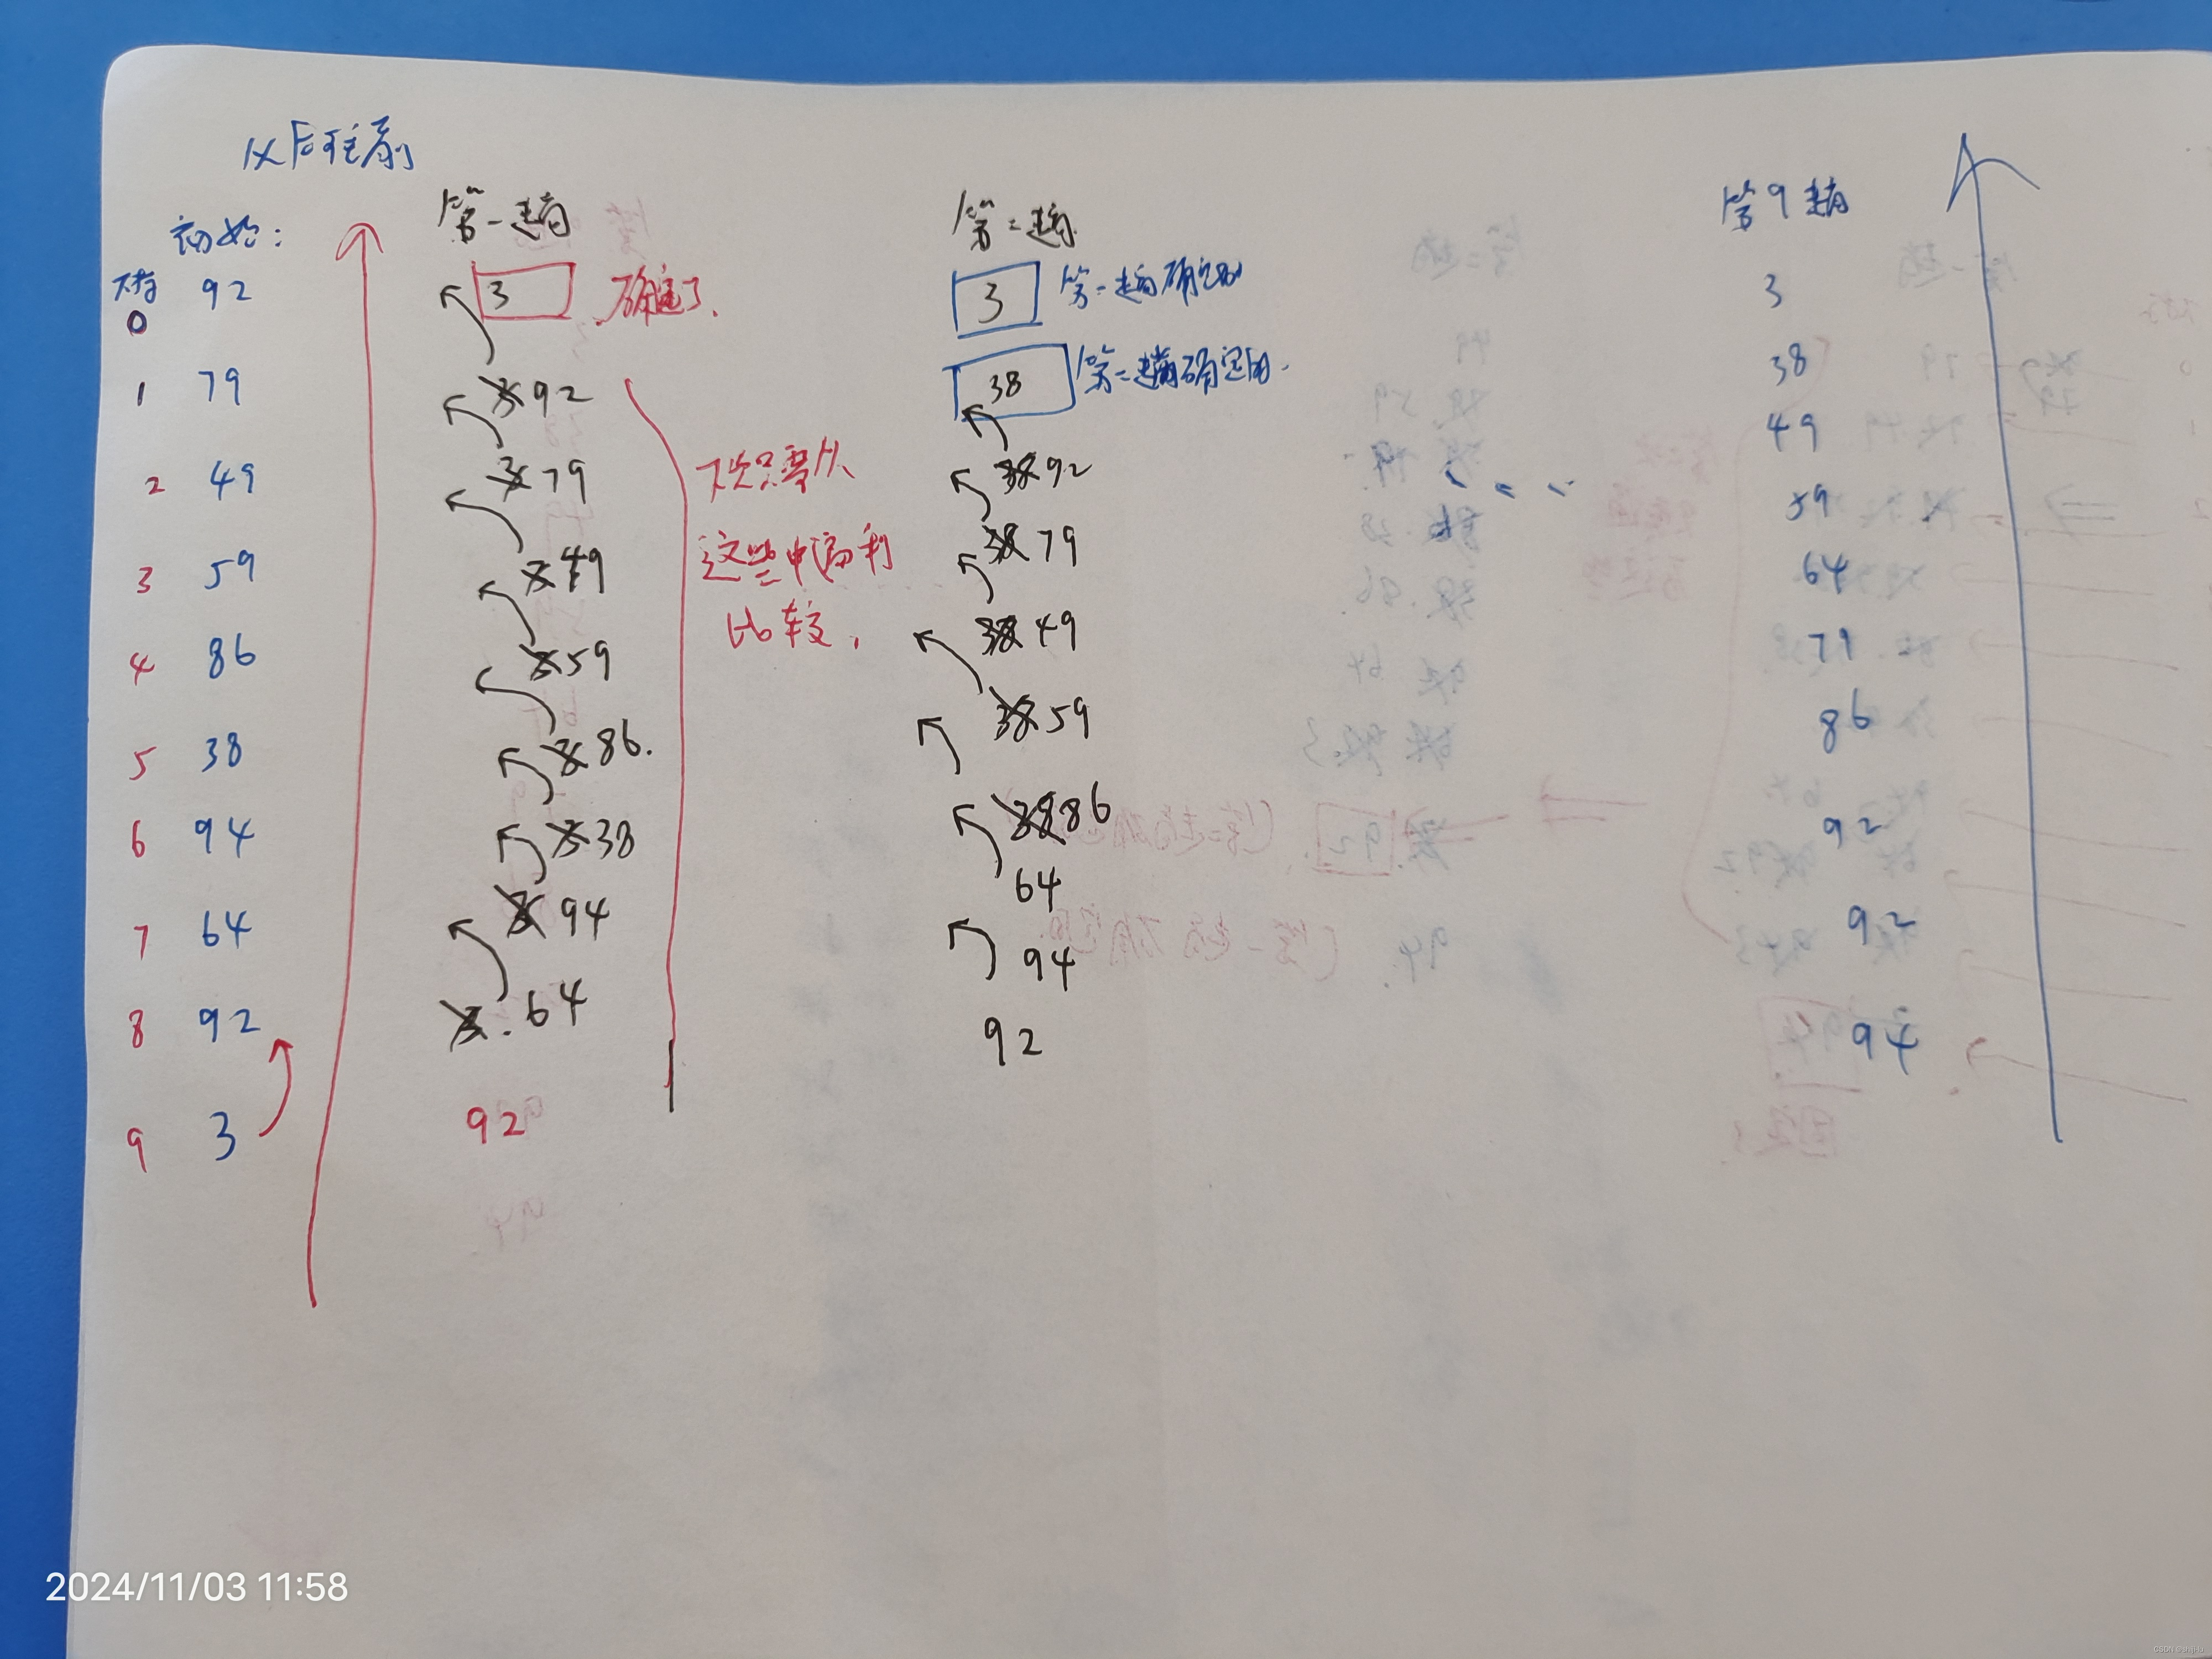 从后往前
初始:
下标
0 92
1 79
2 49
3 59
4 86
5 38
6 94
7 64
8 92
9 3
第一趟
3 确定了.
3 92
3 79
3 49
3 59
3 86.
3 38
3 94
3. 64
92
下次只要从
这些中两两
比较.
第二趟
3 第一趟确定的
38 第二趟确定的.
38 92
38 79
38 49
38 59
38 86
64
94
92
第9趟
3
38
49
59
64
79
86
92
92
94
2024/11/03 11:58